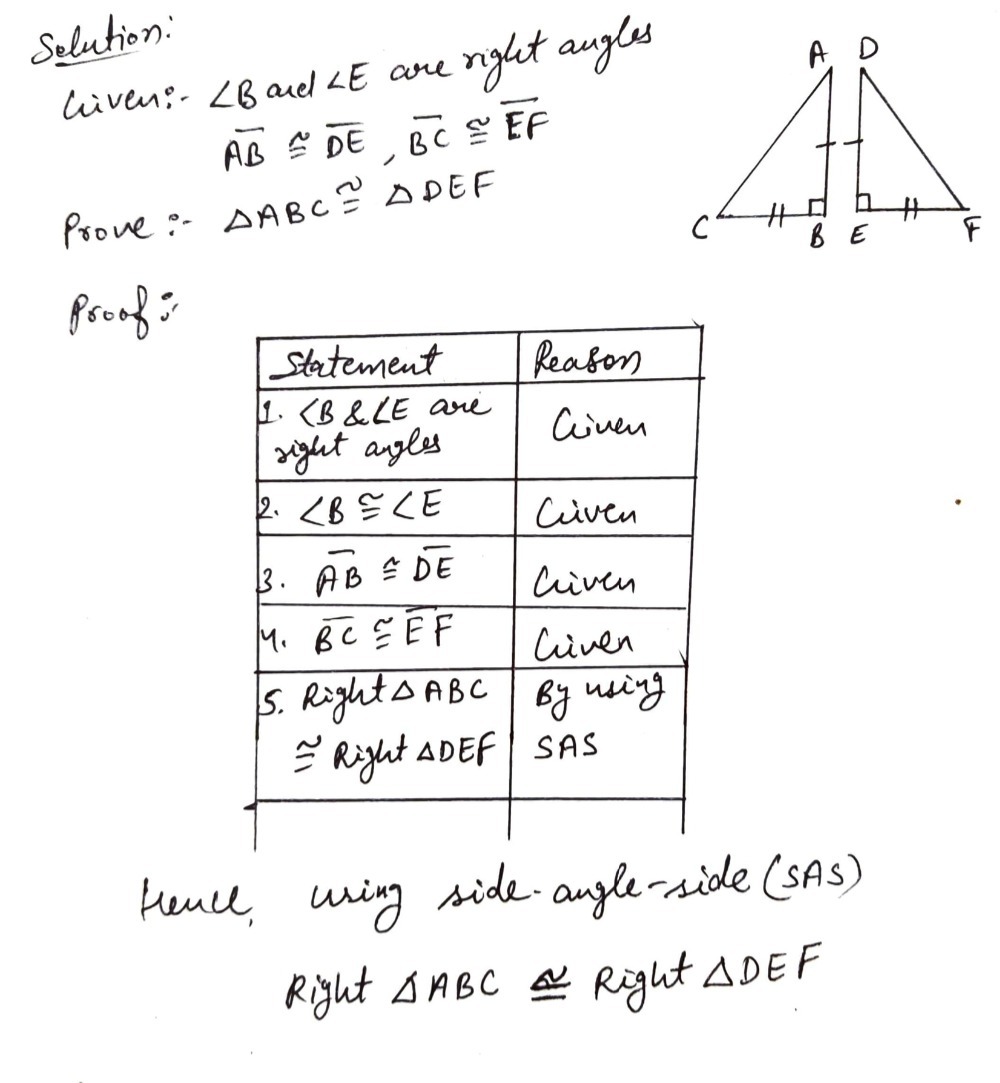 Solution:
Given:- ∠B and ∠E are right angles
A̅B̅ ≅ D̅E̅ , B̅C̅ ≅ E̅F̅
Prove :- △ABC ≅ △DEF
A D
C B E F
Proof :-
Statement Reason
1. ∠B & ∠E are
right angles Given
2. ∠B ≅ ∠E Given
3. A̅B̅ ≅ D̅E̅ Given
4. B̅C̅ ≅ E̅F̅ Given
5. Right △ ABC By using
≅ Right △DEF SAS
Hence, using side-angle-side (SAS)
Right △ABC ≅ Right △DEF